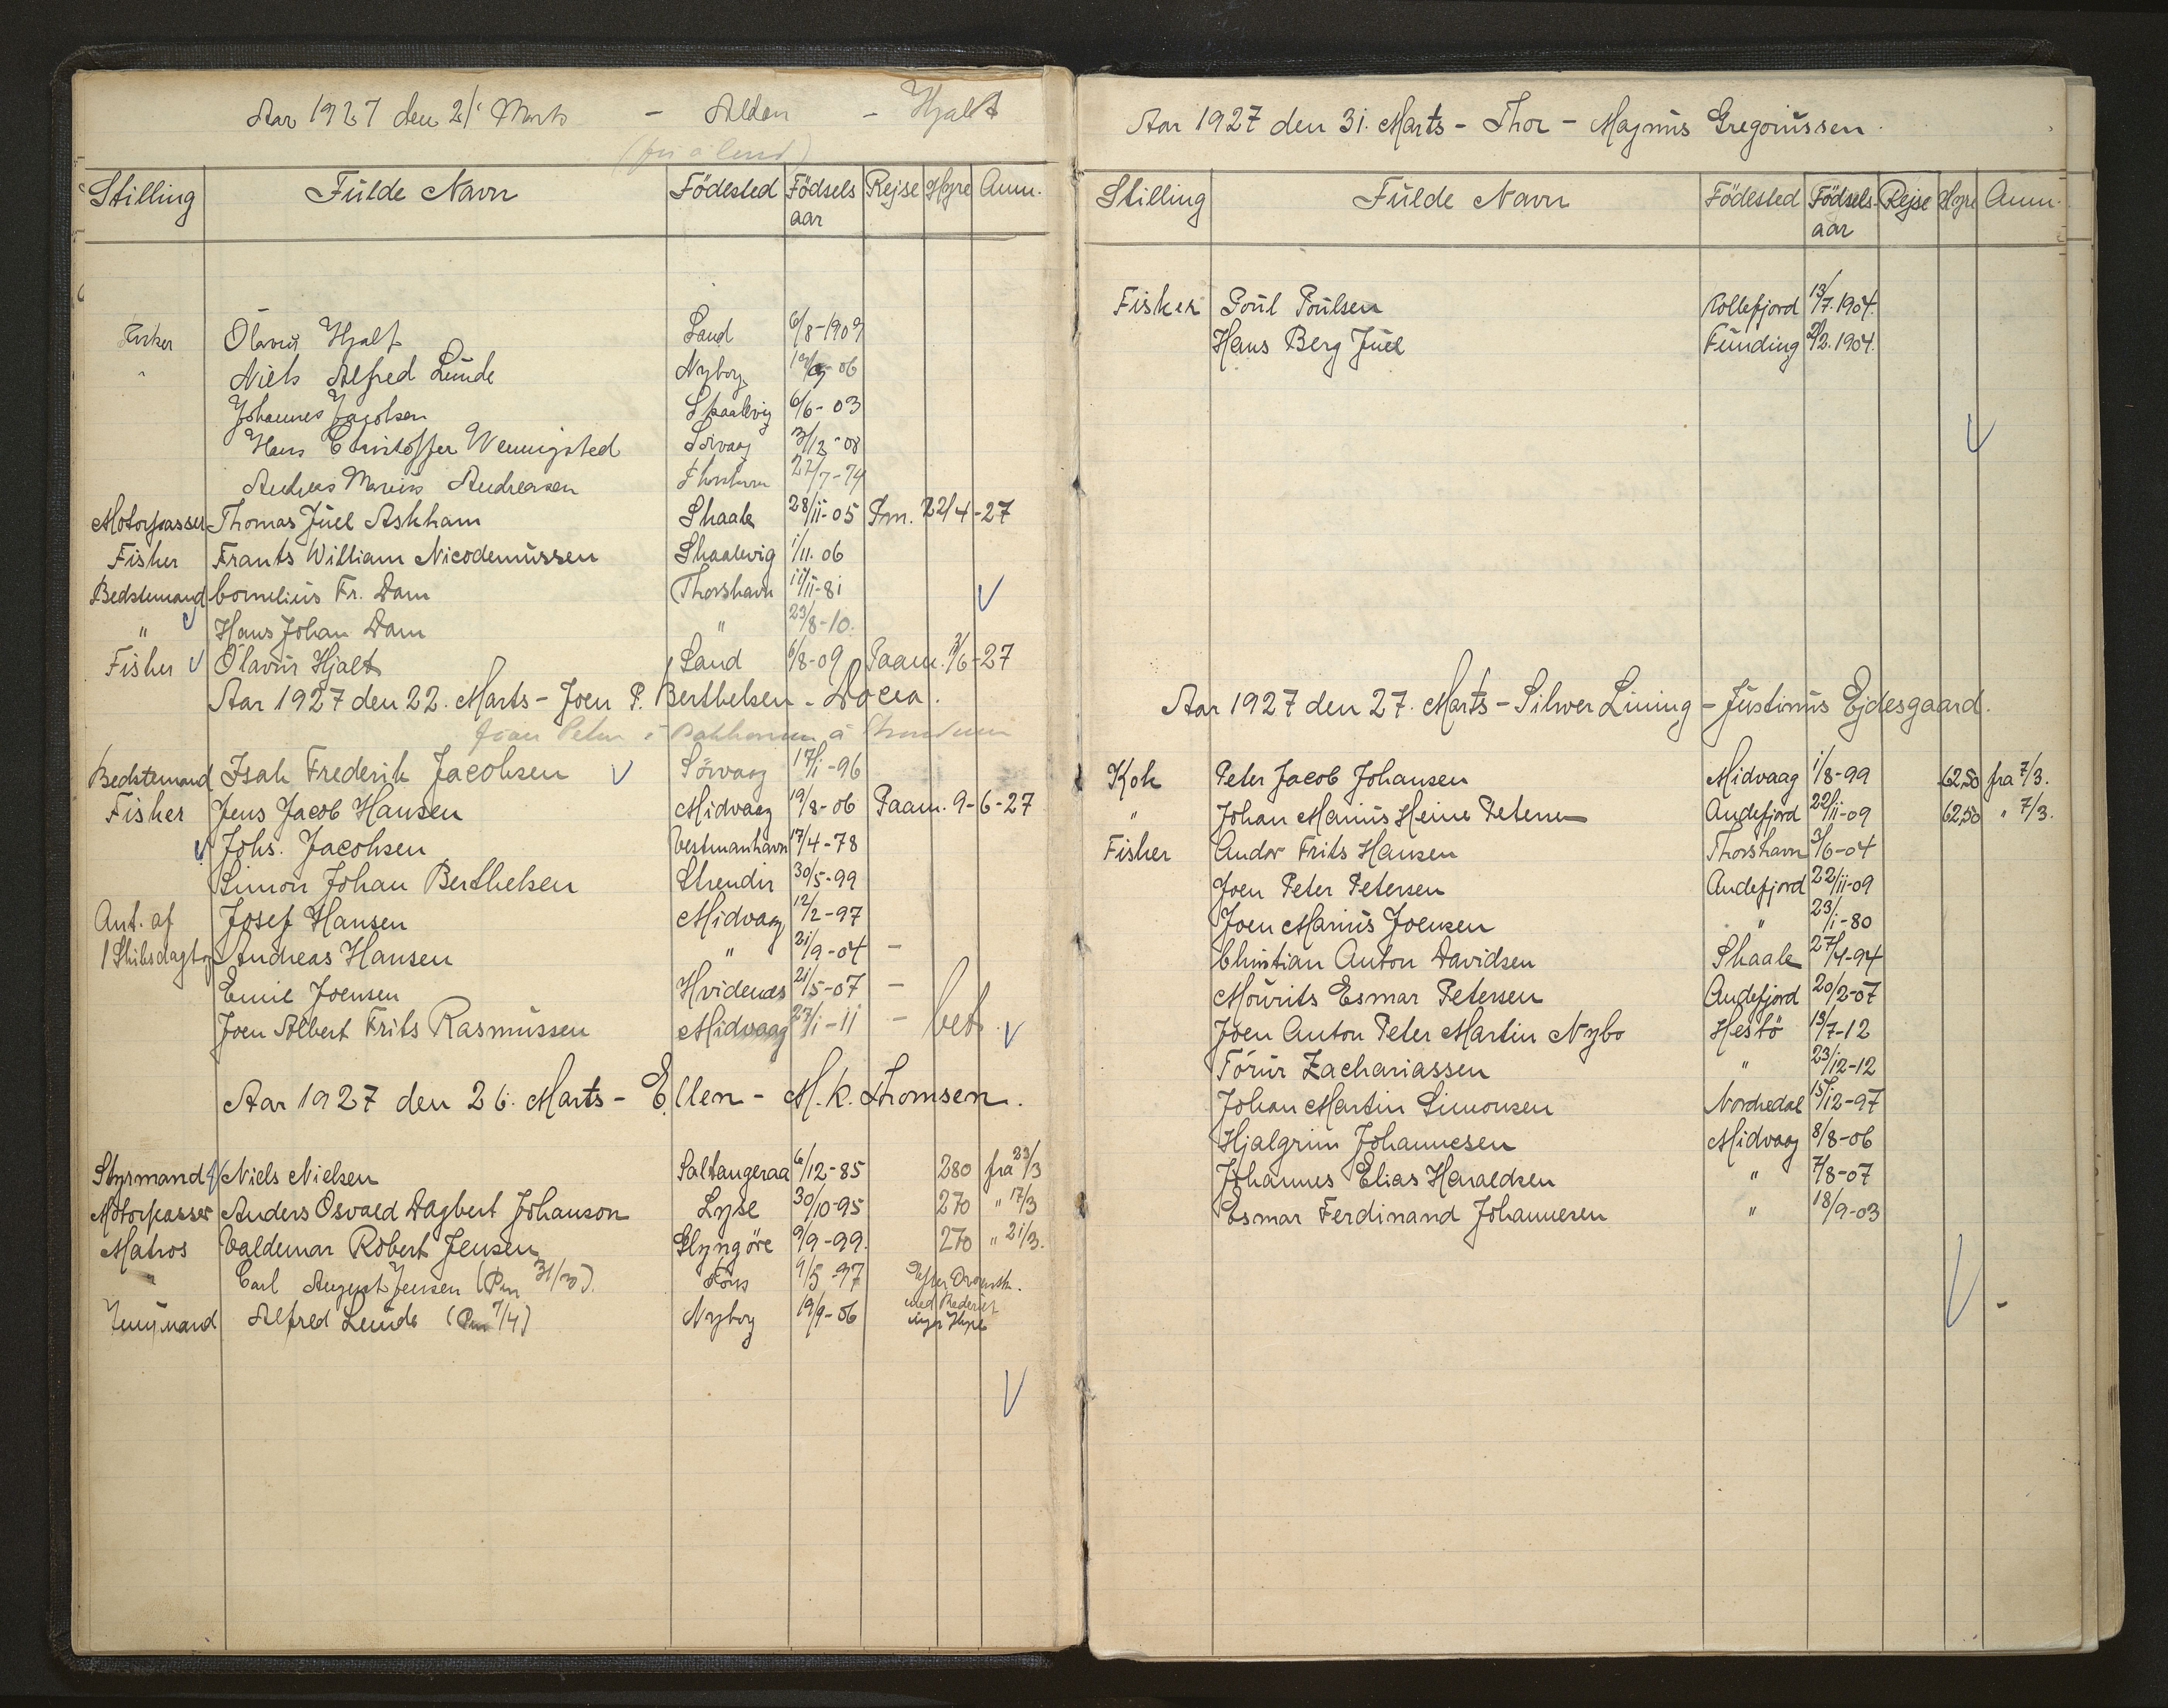 Aar 1927 den 21' Marts - Alden - Hjalt
Stilling Fülde Navn Födested Födsels aar Rejse Hyre Anm.
Fisker Ólavur Hjalt Sand 6/8-1909
" Niels Alfred Lunde Nyborg 19/9-06
Johannes Jacobsen Skaalevig 6/6-03
Hans Christoffer Wennigsted Sörvaag /12-08
Andreas Marius Andreasen Thorshavn 22/7-74
Motorpasser Thomas Juel Askham Skaale 28/11-05 Pm. 22/4-27
Fisher Frants William Nicodemussen Skaalevig 1/11.06
Bedstemand Cornelius Fr. Dam Thorshavn 11/11-81
" Hans Johan Dam " 23/8-10.
Fisher Ólavur Hjalt Sand 6/8-09 Paam. 3/6-27
Aar 1927 den 22. Marts - Joen P. Berthelsen - Docia.
Bedstemand Isak Frederik Jacobsen Sörvaag 17/1-96
Fisher Jens Jacob Hansen Midvaag 19/8-06 Paam. 9-6-27
Johs. Jacobsen Vestmanhavn 17/4-78
Simon Johan Berthelsen Strendir 30/5-99
Ant. af Josef Hansen Midvaag 12/2-97
1 Skibsdagbog Andreas Hansen " 21/9-04 -
Emil Joensen Hvidenæs 21/5-07 -
Joen Albert Frits Rasmussen Midvaag 27/1-11 - bet.
Aar 1927 den 26. Marts - Ellen - M.K. Thomsen.
Styrmand Niels Nielsen Saltangeraa 6/12-85 280 fra 23/3
Motorpasser Anders Osvald Dagbert Johanson Lyse 30/10-95 270 " 17/3
Matros Valdemar Robert Jensen Glyngöre 9/9-99. 270 " 21/3.
" Carl August Jensen (Pm 31/30).Föns 9/5-97 Efter Overensk.
Jungmand Alfred Lunde (Pm 7/4) Nyborg 19/9-06 med Rederiet
Hyre
Aar 1927 den 31. Marts - Thor - Magnus Gregoriussen.
Stilling Fülde Navn Födested Födsels-aar Rejse Hyre Anm.
Fisker Poul Poulsen Kollefjord 13/7.1904.
Hans Berg Juel Funding 2/2.1904.
Aar 1927 den 27. Marts - Silwer Lining - Justinus Ejdesgaard.
Kok Peter Jacob Johansen Midvaag 1/8-99 62,50 fra 7/3.
" Johan Marius Heine Petersen Andefjord 22/11-09 62,50 " 7/3.
Fisher Andor Frits Hansen Thorshavn 3/6-04
Joen Peter Petersen Andefjord 22/11-09
Joen Marius Joensen " 23/1-80
Christian Anton Davidsen Skaale 27/4-94
Mourits Esmar Petersen Andefjord 20/2-07
Joen Anton Peter Martin Nybo Hestö 13/7-12
Tórur Zachariassen " 23/12-12
Johan Martin Simonsen Nordredal 15/12-97
Hjalgrim Johannesen Midvaag 8/8-06
Johannes Elias Haraldsen " 7/8-07
Esmar Ferdinand Johannesen " 18/9-03